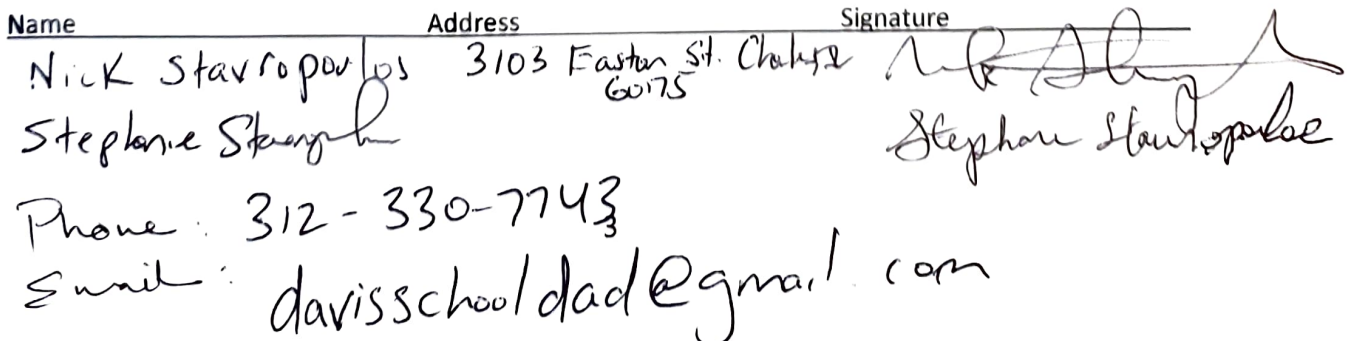 Name Address Signature
Nick Stavropoulos 3103 Easton St.
60175
Stephanie Stephanie Stavropoulos
Phone: 312-330-7743
Email: davisschooldad@gmail.com